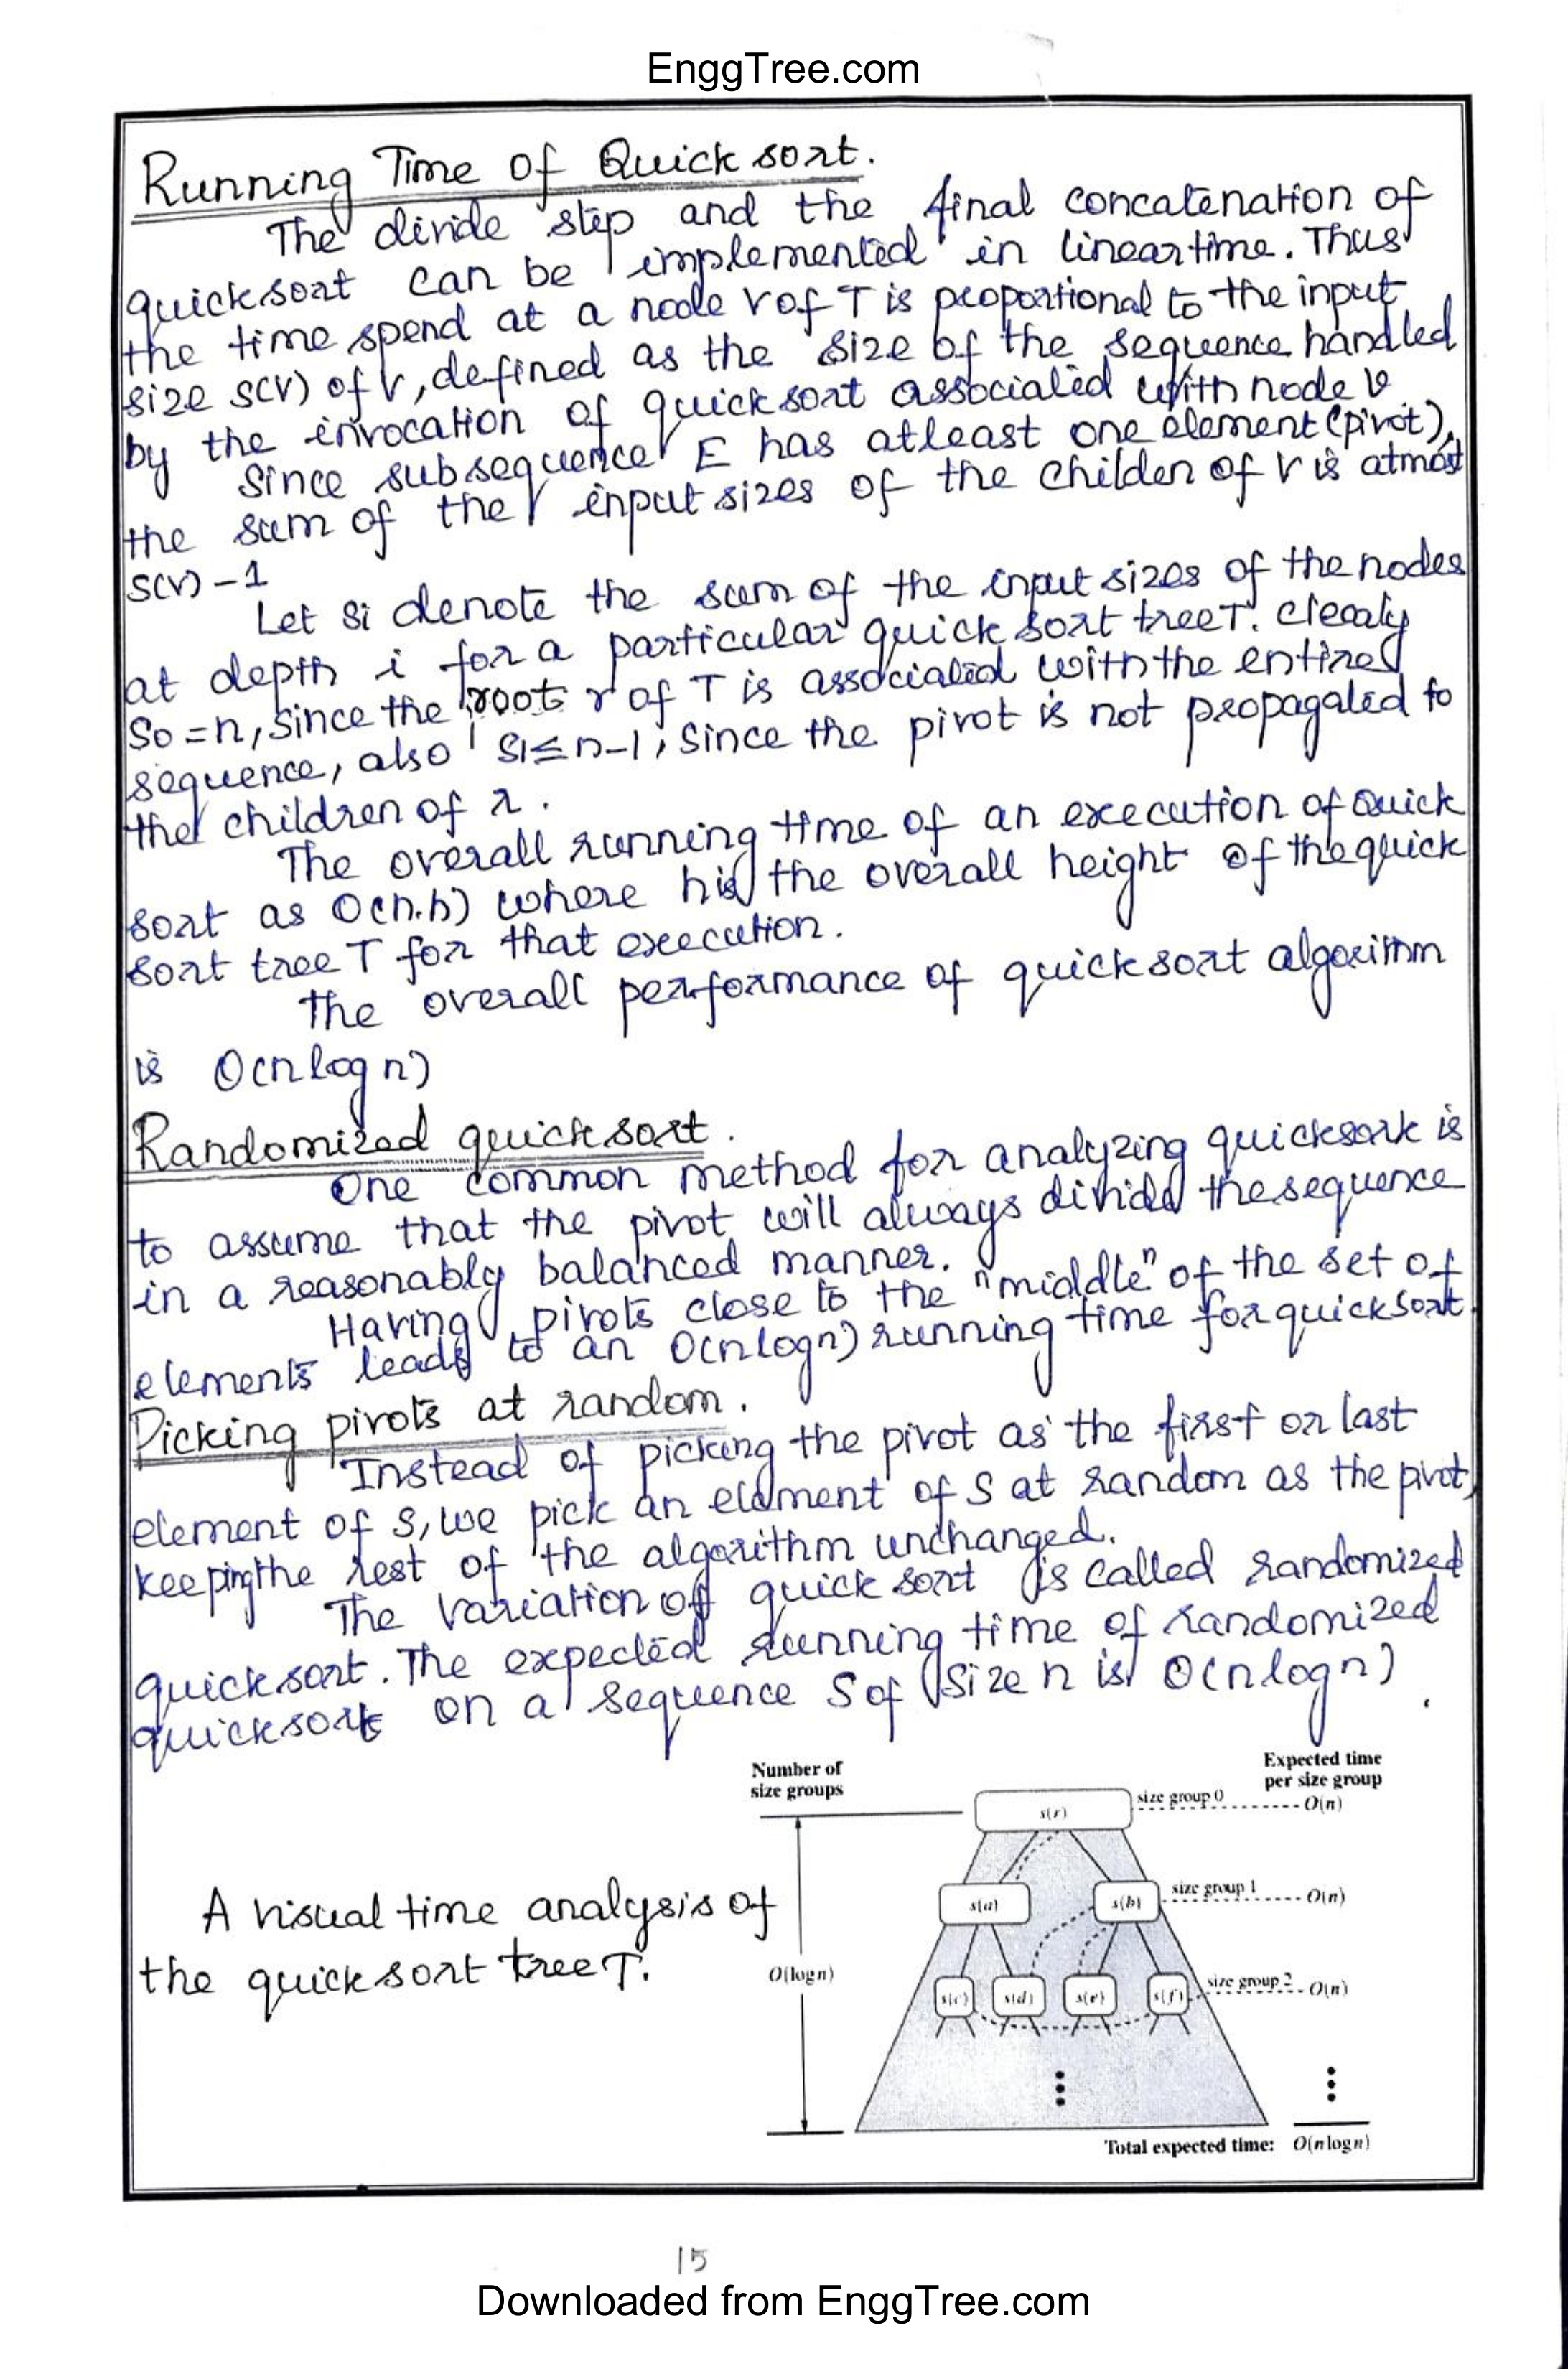 EnggTree.com
Running Time of Quick sort.
The divide step and the final concatenation of
quicksort can be implemented in lineartime. Thus
the time spend at a node v of T is proportional to the input
size s(v) of v, defined as the size of the sequence handled
by the invocation of quick sort associated with node v.
Since subsequence E has atleast one element (pivot),
the sum of the input sizes of the childen of v is atmost
s(v) - 1
Let si denote the sum of the input sizes of the nodes
at depth i for a particular quick sort tree T. Clealy
So = n, since the root r of T is associated with the entire
sequence, also S1 ≤ n-1, since the pivot is not propagated to
the children of r.
The overall running time of an execution of Quick
sort as O(n.h) where h is the overall height of the quick
sort tree T for that execution.
The overall performance of quick sort algorithm
is O(n log n)
Randomized quick sort.
One common method for analyzing quicksort is
to assume that the pivot will always divide the sequence
in a reasonably balanced manner.
Having pivots close to the "middle" of the set of
elements leads to an O(n log n) running time for quicksort.
Picking pivots at random.
Instead of picking the pivot as the first or last
element of S, we pick an element of S at random as the pivot,
keeping the rest of the algorithm unchanged.
The variation of quick sort is called randomized
quick sort. The expected running time of randomized
quicksort on a sequence S of size n is O(n log n).
Number of
size groups
Expected time
per size group
s(r)
size group 0
O(n)
A visual time analysis of
the quick sort tree T.
s(a)
s(b)
size group 1
O(n)
O(log n)
s(c)
s(d)
s(e)
s(f)
size group 2
O(n)
Total expected time: O(n log n)
15
Downloaded from EnggTree.com